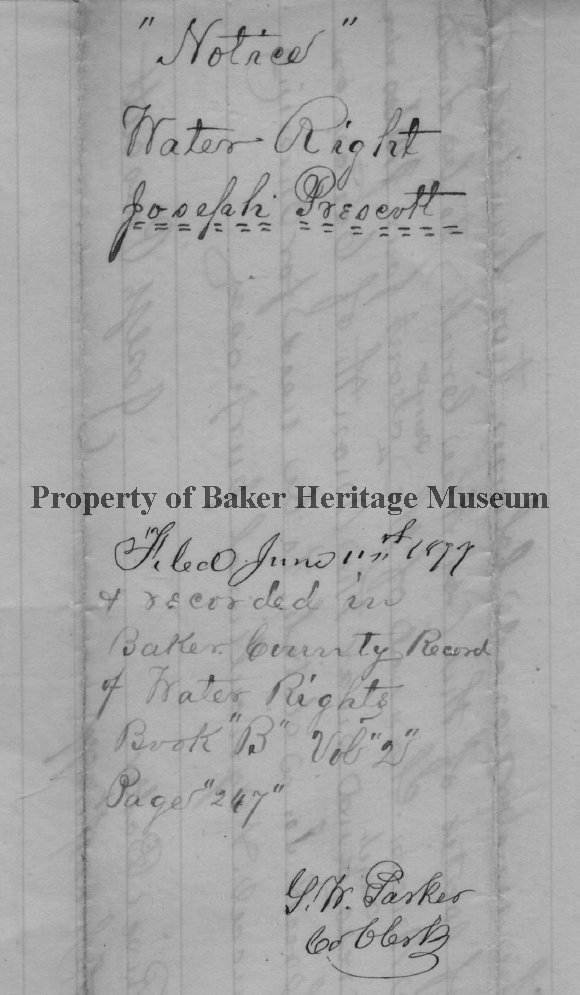 "Notice"
Water Right
Joseph Prescott
Property of Baker Heritage Museum
Filed June 11th 1877
& recorded in
Baker County Record
of Water Rights
Book "B" Vol "2"
Page "247"
G. W. Parker
Co Clerk